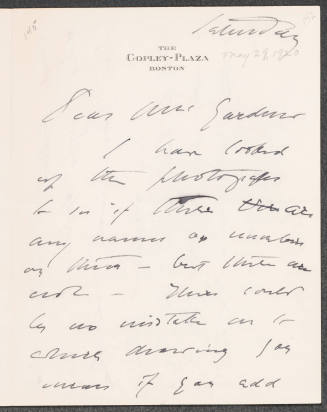 Saturday
May 29, 1920
THE
COPLEY-PLAZA
BOSTON
Dear Mrs Gardner
I have looked
up the photographs
to see if there are
any names or numbers
on them – but there are
not – There could
be no mistake as to
which drawing you
mean if you add